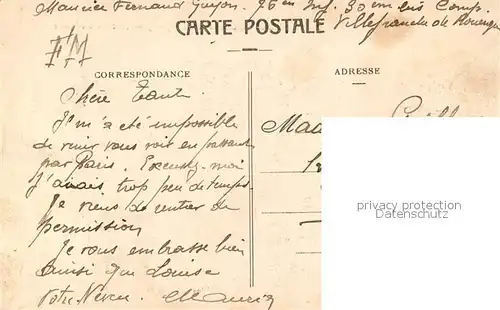 Maurice Fernand Guyon. 96 em Inf. 30 em bis Comp.
Villefranche de Rouergue
CARTE POSTALE
FM
CORRESPONDANCE
ADRESSE
Chère Tante.
Je m'a été impossible
de venir vous voir en passant
par Paris. Excusez-moi
j'avais trop peu de temps.
Je viens de rentrer de
permission
Je vous embrasse bien
ainsi que Louise
Votre Neveu. Maurice
Mada
PRIVATFOTO